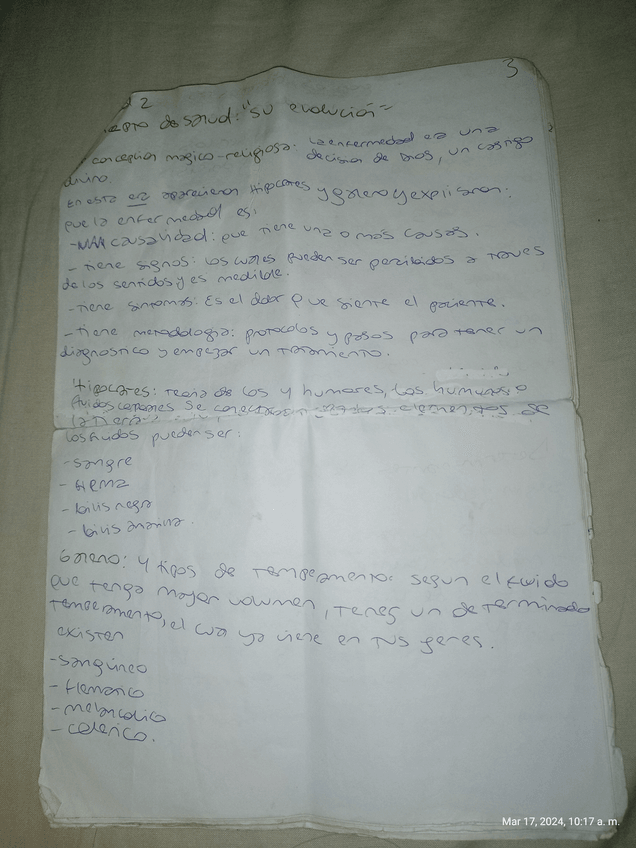 3
2
concepto de salud: "su evolución"
concepcion magico-religiosa: La enfermedad era una
decision de Dios, un castigo
divino.
En esta era aparecieron Hipocrates y galeno y explicaron:
que la enfermedad es:
- causalidad: que tiene una o más causas.
- tiene signos: los cuales pueden ser percibidos a traves
de los sentidos y es medible.
- tiene sintomas: Es el dolor que siente el paciente.
- tiene metodologia: protocolos y pasos para tener un
diagnostico y empezar un tratamiento.
Hipocrates: teoria de los 4 humores, los humanos o
fluidos corporales se elementos de
la tierra
los fluidos pueden ser:
- sangre
- flema
- bilis negra
- bilis amarilla.
Galeno: 4 tipos de temperamento: segun el fluido
que tenga mayor volumen, tenes un determinado
temperamento, el cual ya viene en tus genes.
existen
- sanguineo
- flematico
- melancolico
- colerico.
Mar 17, 2024, 10:17 a. m.